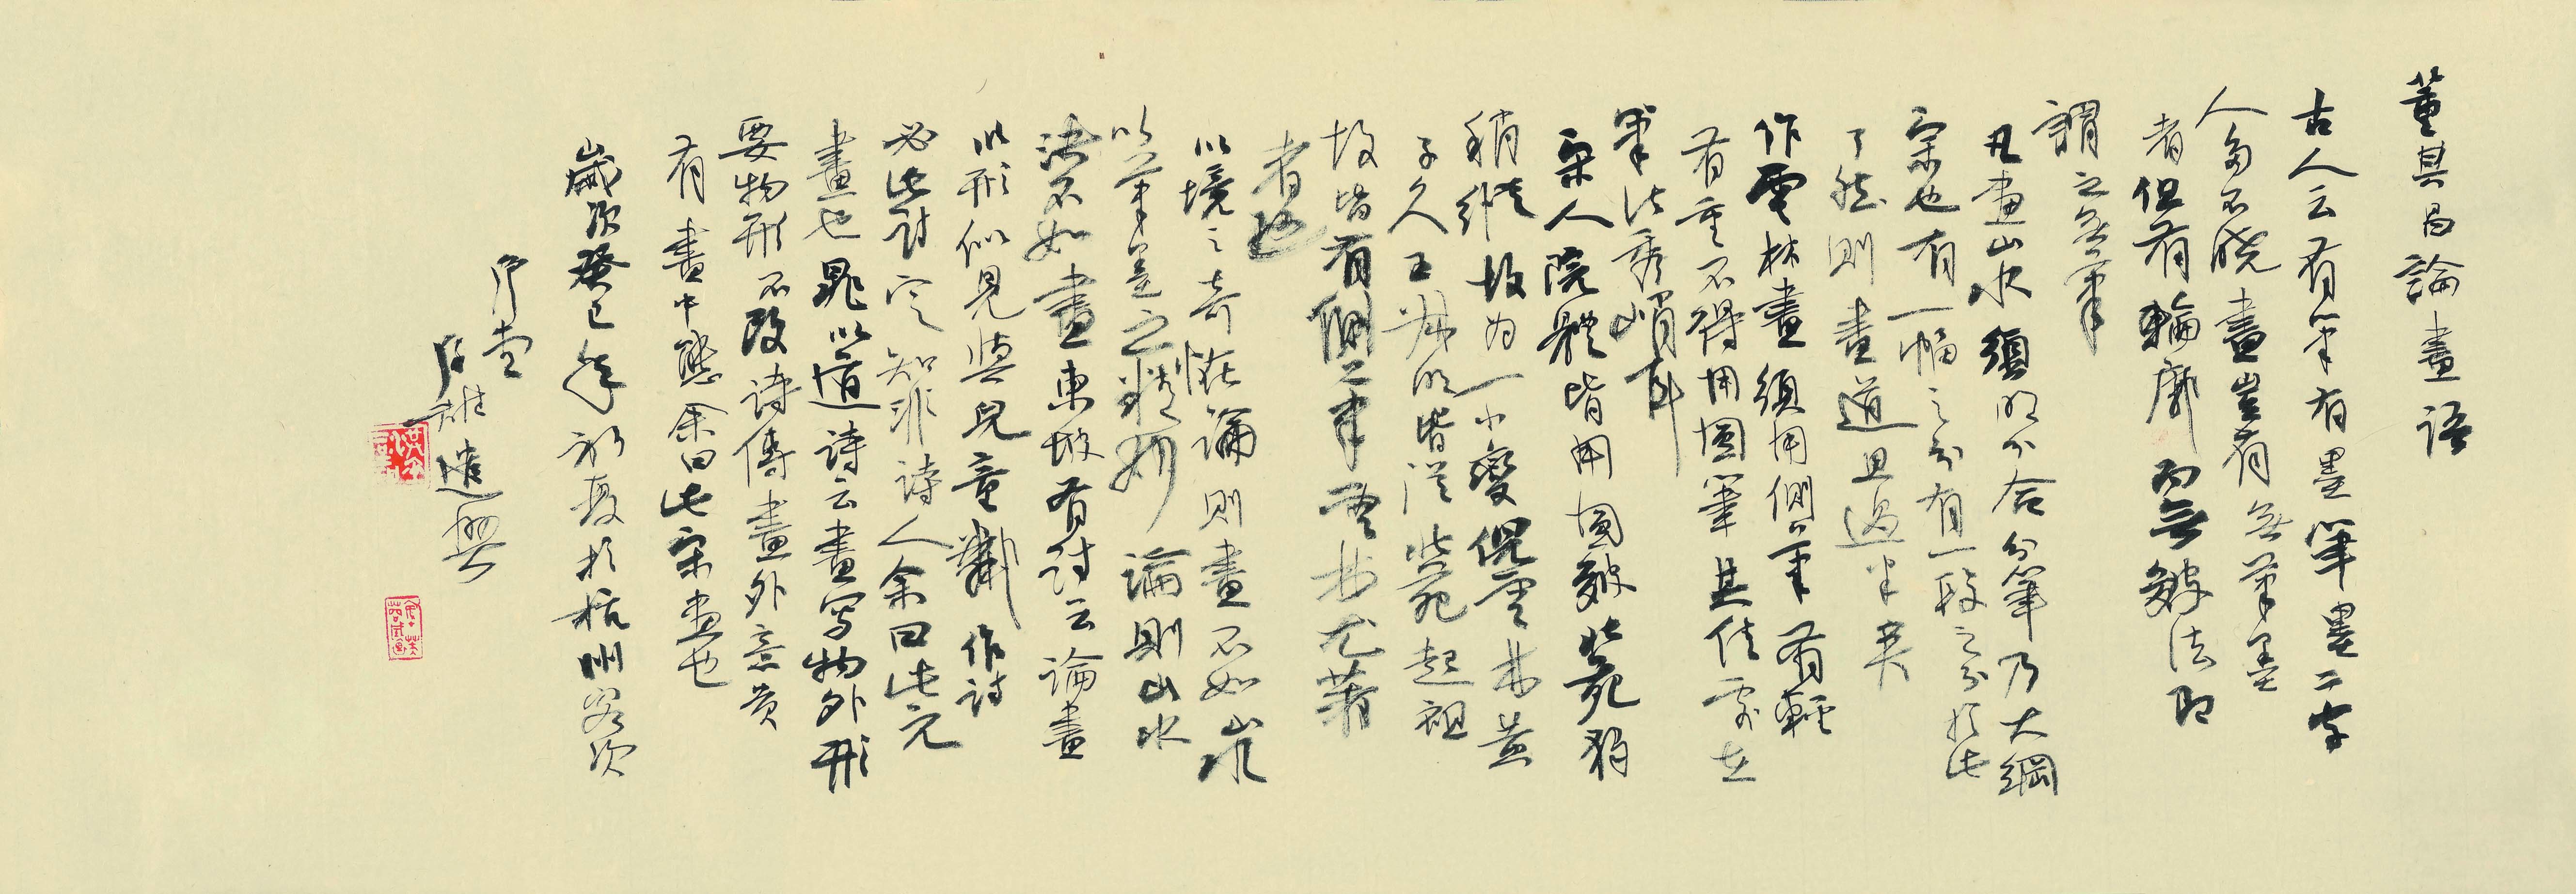 董其昌論畫語
古人云有筆有墨筆墨二字
人多不曉畫豈有無筆墨
者但有輪廓而無皴法即
謂之無筆
凡畫山水須明分合分筆乃大綱
宗也有一幅之分有一段之分於此
了然則畫道且過半矣
作雲林畫須用側筆有輕
有重不得用圓筆其佳處在
筆法秀峭耳
宋人院體皆用圓皴北苑獨
稍縱故為一小變倪雲林黃
子久王叔明皆從北苑起祖
故皆有側筆雲林尤著
者也
以境之奇怪論則畫不如山水
以筆墨之精妙論則山水
決不如畫東坡有詩云論畫
以形似見與兒童鄰作詩
必此詩定知非詩人余曰此元
畫也晁以道詩云畫寫物外形
要物形不改詩傳畫外意貴
有畫中態余曰此宋畫也
歲次癸巳年初夏於杭州客次
遣興